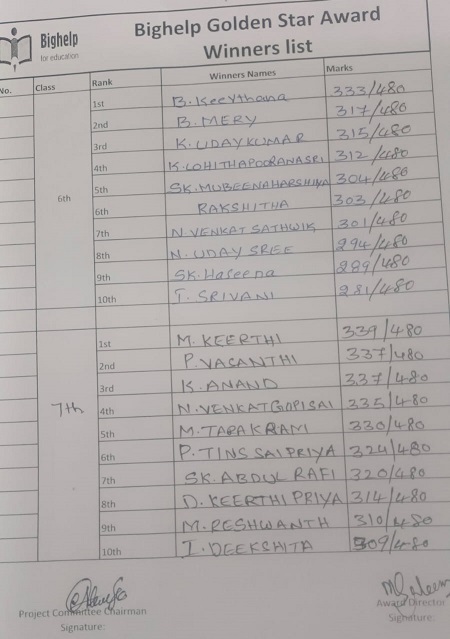 Bighelp
for education
Bighelp Golden Star Award
Winners list
No. Class Rank Winners Names Marks
6th
1st B. Keeythana 333/480
2nd B. MERY 317/480
3rd K. UDAYKUMAR 315/480
4th K. LOHITHAPOORANASRI 312/480
5th SK. MUBEENAHARSHINA 304/480
6th RAKSHITHA 303/480
7th N. VENKAT SATHWIK 301/480
8th N. UDAY SREE 294/480
9th SK. Haseena 289/480
10th T. SRIVANI 281/480
7th
1st M. KEERTHI 339/480
2nd P. VASANTHI 337/480
3rd K. ANAND 337/480
4th N. VENKAT GOPI SAI 335/480
5th M. TARAK RANI 330/480
6th P. TINS SAI PRIYA 324/480
7th SK. ABDUL RAFI 320/480
8th D. KEERTHI PRIYA 314/480
9th M. RESHWANTH 310/480
10th I. DEEKSHITA 309/480
Project Committee Chairman
Signature:
Award Director
Signature: